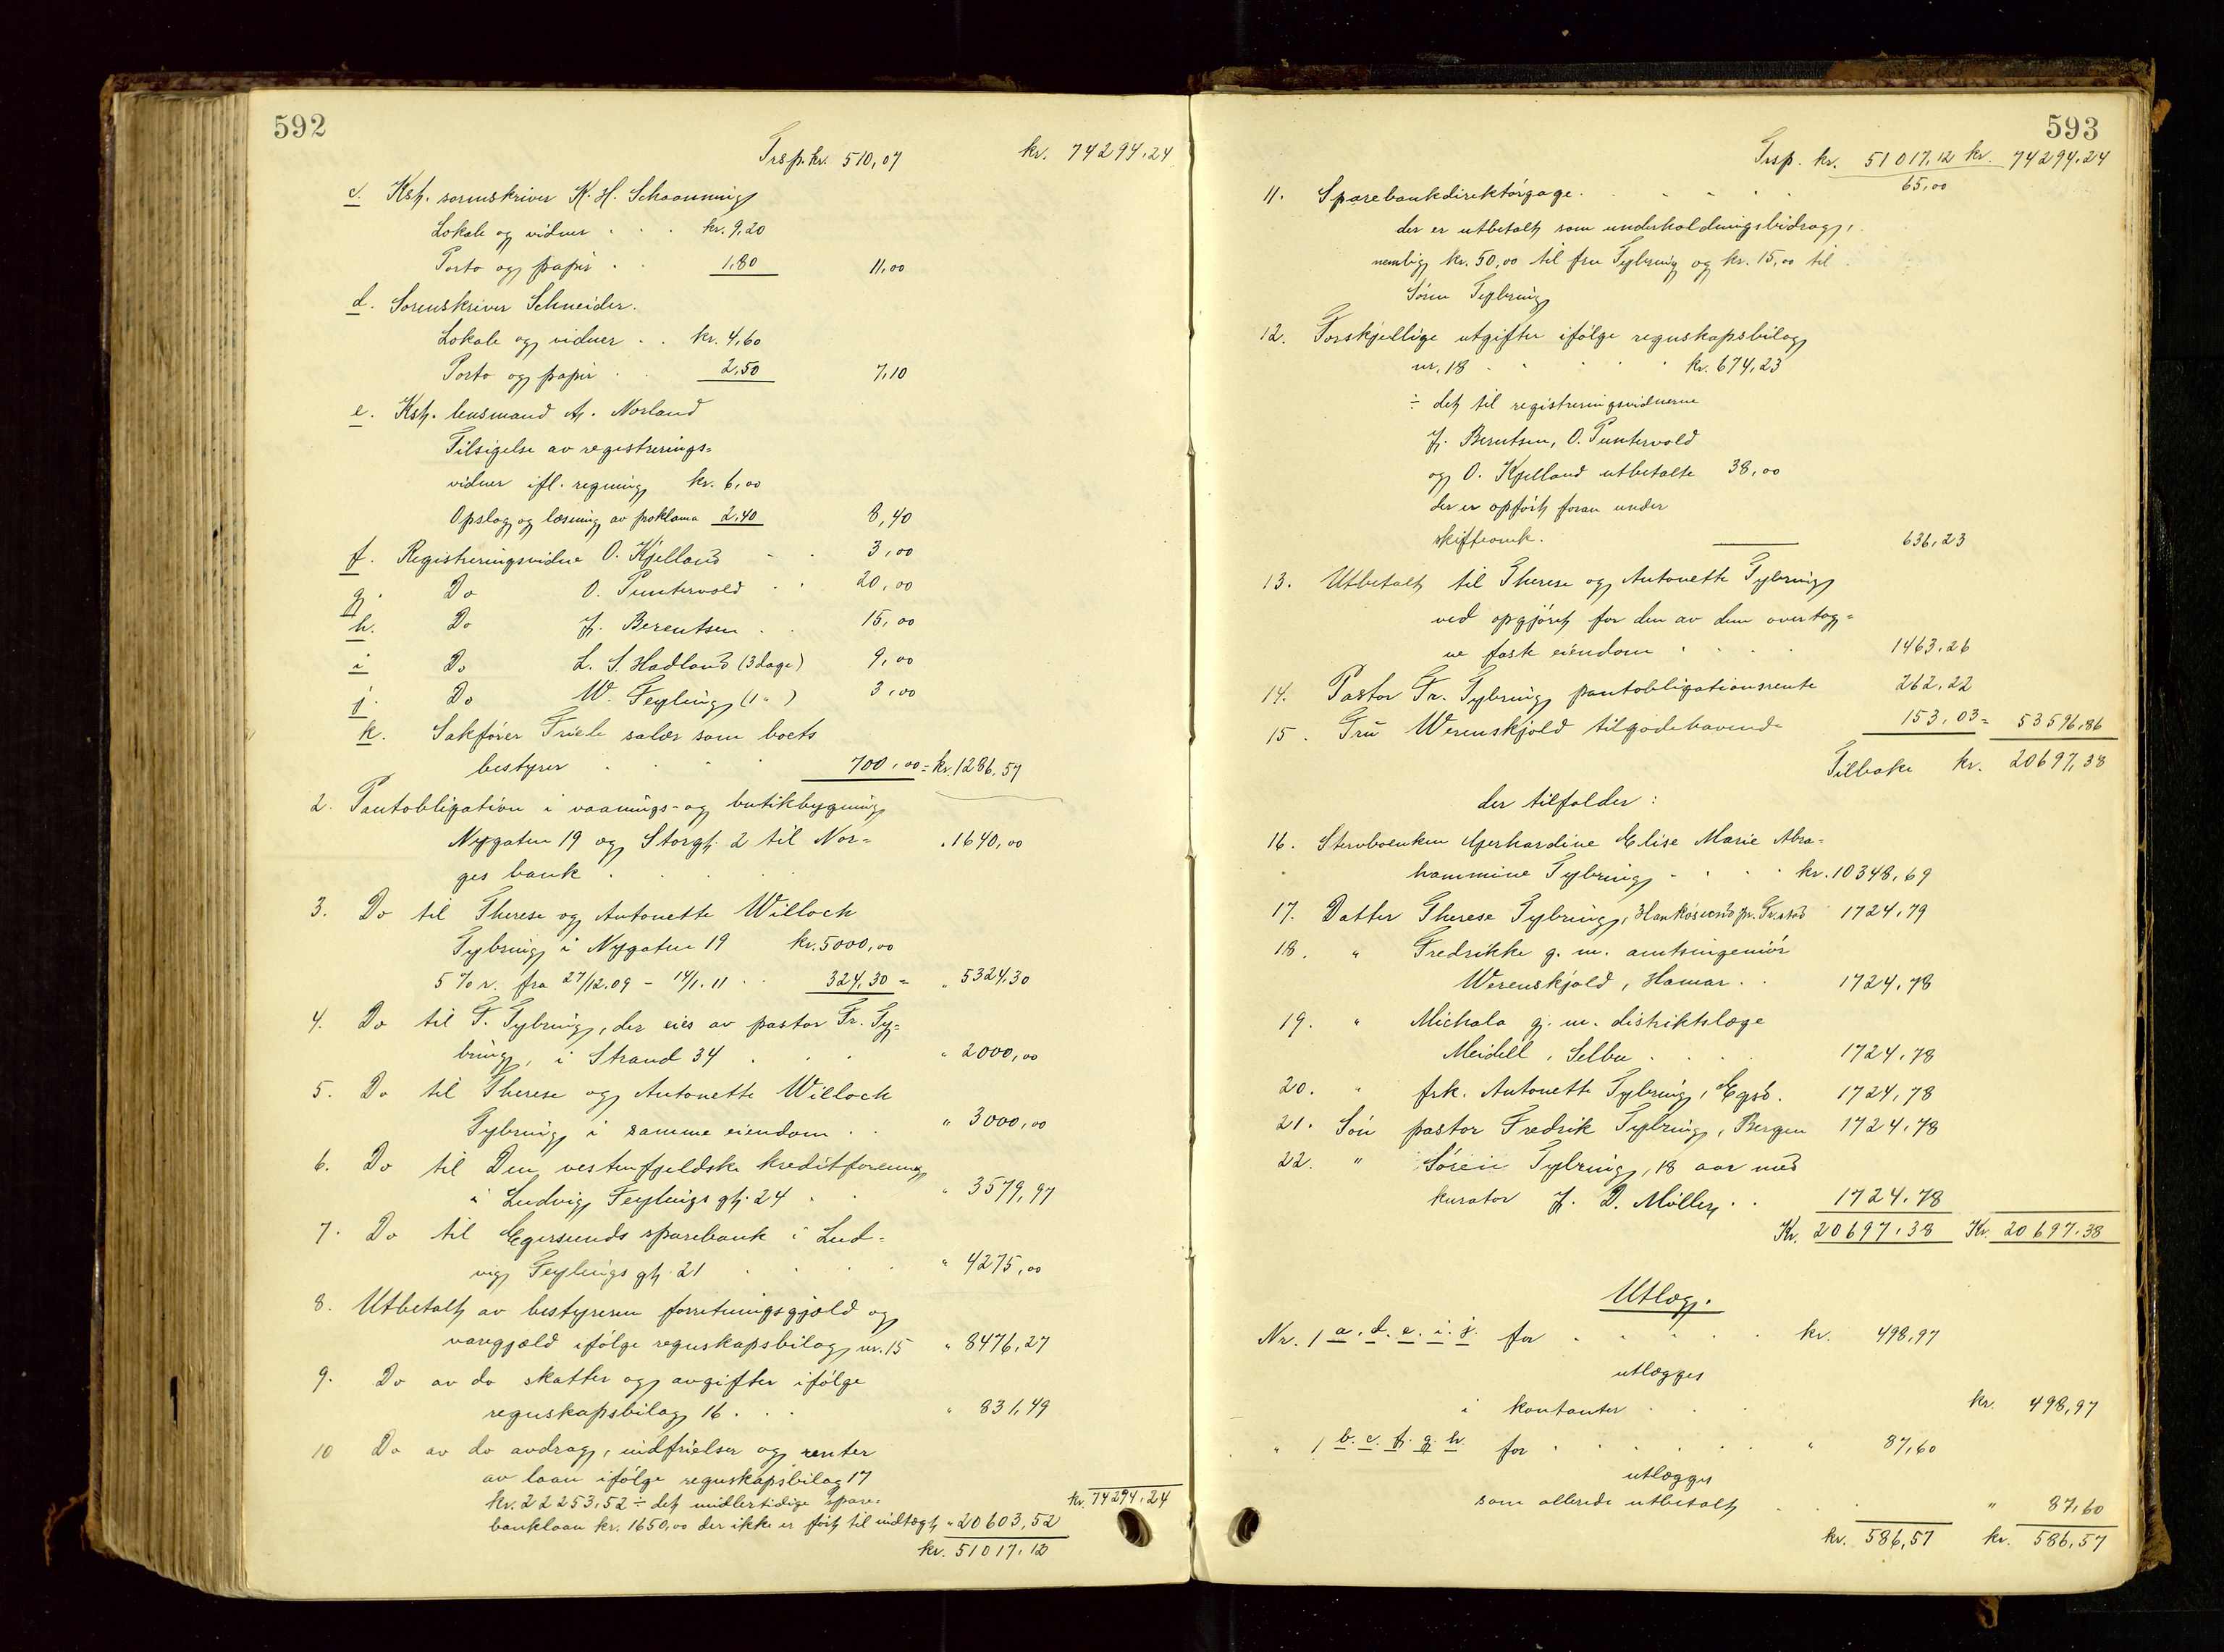 592
Trsp. kr. 510,07 kr. 74294,24
c. Kst. sorenskriver K. H. Schaanning
Lokale og vidner . . . kr. 9,20
Porto og papir . . 1,80 11,00
d. Sorenskriver Schneider.
Lokale og vidner . . kr. 4,60
Porto og papir . . 2,50 7,10
e. Kst. lensmand A. Norland
Tilsigelse av registrerings=
vidner ifl. regning kr. 6,00
Opslag og læsning av proklama 2,40 8,40
f. Registreringsvidne O. Kjelland . . 3,00
g. Do O. Puntervold . . 20,00
h. Do J. Berentsen . . 15,00
i Do L. S Hadland (3 dage) 9,00
j. Do W. Feyling (1 " ) 3,00
k. Sakfører Friele salær som boets
bestyrer . . . . 700,00 = kr. 1286,57
2. Pantobligation i vaanings- og butikbygning
Nygaten 19 og Storgt. 2 til Nor= " 1640,00
ges bank . . . .
3. Do til Therese og Antonette Willoch
Tybring i Nygaten 19 kr. 5000,00
5 % r. fra 27/12.09 - 14/1.11 . . 324,30 = " 5324,30
4. Do til F. Tybring, der eies av pastor Fr. Ty=
bring, i Strand 34 . . . " 2000,00
5. Do til Therese og Antonette Willoch
Tybring i samme eiendom . . " 3000,00
6. Do til Den vestenfjeldske kreditforening
i Ludvig Feylings gt. 24 . . " 3579,97
7. Do til Egersunds sparebank i Lud=
vig Feylings gt. 21 . . . . " 4275,00
8. Utbetalt av bestyreren forretningsgjæld og
varegjæld ifølge regnskapsbilag nr. 15 " 8476,27
9. Do av do skatter og avgifter ifølge
regnskapsbilag 16 . . . " 831,49
10 Do av do avdrag, indfrielser og renter
av laan ifølge regnskapsbilag 17
kr. 22253,52 ÷ det midlertidige spare= kr. 74294,24
banklaan kr. 1650,00 der ikke er ført til indtægt " 20603,52
kr. 51017,12
593
Trsp. kr. 51017,12 kr. 74294,24
11. Sparebankdirektørgage . . . . . 65,00
der er utbetalt som underholdningsbidrag,
nemlig kr. 50,00 til fru Tybring og kr. 15,00 til
Søren Tybring
12. Forskjellige utgifter ifølge regnskapsbilag
nr. 18 . . . . . kr. 674,23
÷ det til registreringsvidnerne
J. Berntsen, O. Puntervold
og O. Kjelland utbetalte 38,00
der er opført foran under
skifteomk. 636,23
13. Utbetalt til Therese og Antonette Tybring
ved opgjøret for den av dem overtag=
ne faste eiendom . . . . 1463,26
14. Pastor Fr. Tybring pantobligationsrente 262,22
15. Fru Werenskjold tilgodehavende 153,03 = 53596,86
Tilbake kr. 20697,38
der tilfalder:
16. Stervboenken Gerhardine Elise Marie Abra=
hammine Tybring . . . . kr. 10348,69
17. Datter Therese Tybring, Hankøsund pr. Fr.stad 1724,79
18. " Fredrikke g. m. amtsingeniør
Werenskjold, Hamar . . 1724,78
19. " Michala g. m. distriktslæge
Meidell, Selbu . . . . 1724,78
20. " frk. Antonette Tybring, Egsd. 1724,78
21. Søn pastor Fredrik Tybring, Bergen 1724,78
22. " Søren Tybring, 18 aar med
kurator J. D. Møller . . 1724,78
Kr. 20697,38 Kr. 20697,38
Utlæg.
Nr. 1 a. d. e. i. j. for . . . . . kr. 498,97
utlægges
i kontanter . . . kr. 498,97
" 1 b. c. f. g. h. for . . . . . . " 87,60
utlægges
som allerede utbetalt . . . " 87,60
kr. 586,57 kr. 586,57